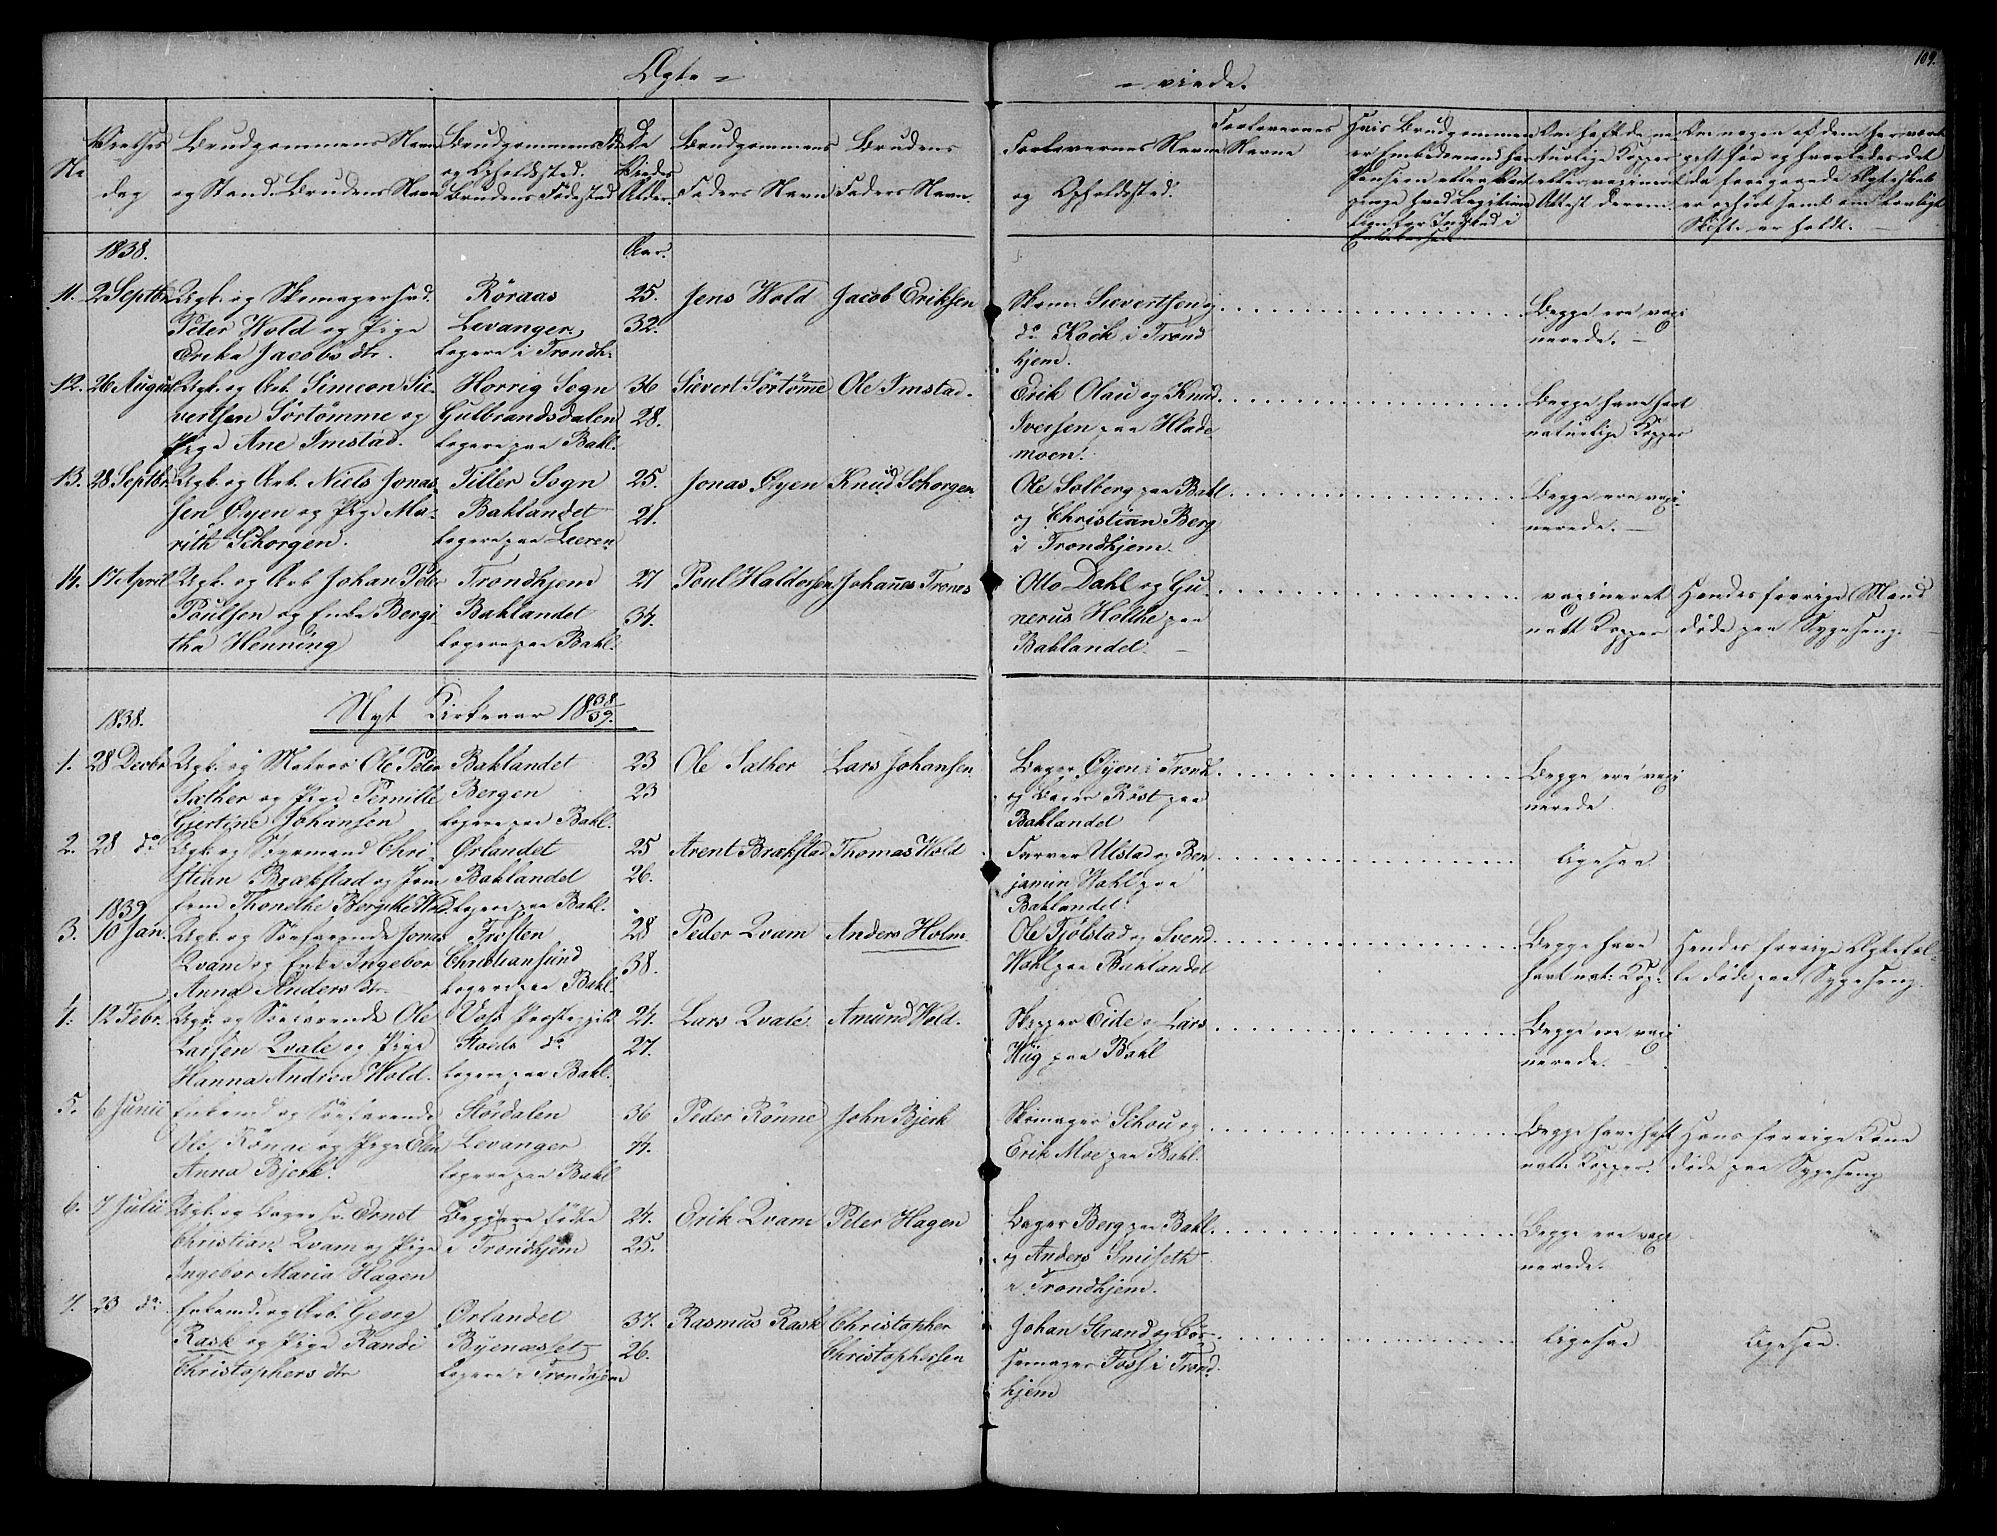 109.
Ægte = = viede.
No
Vielses dag
Brudgommens Navn og Stand. Brudens Navn
Brudgommens og Opholdssted. Brudens Fødested
De Viedes Alder.
Brudgommens Faders Navn
Brudens Faders Navn.
Forlovernes Navne og Opholdssted.
Forlovernes Navne
Hvis Brudgommen er Embedsmand
Om hafte de naturlige Kopper eller vaxineret Attest derom.
Om nogen af dem har været gift før og hvorledes det da foregaaende Ægteskab er ophørt samt om lovligt Skifte er holdt.
1838.
Aar.
11. 2 Septbr Ungk. og Skomagersvd.
Peter Wold og Pige
Erika Jacobs dtr.
Röraas
Levanger.
logere i Trondh:
25.
32.
Jens Wold
Jacob Eriksen
Skom: Sievertsen og
do Kock i Trond
hjem.
Begge ere vaxi
nerede.
12. 26 August Ungk. og Arb. Simeon Sie-
vertsen Sörtömme og
Pige Ane Imstad.
Horrig Sogn
Gulbrandsdalen
logere paa Bakl.
36
28.
Sievert Sörtöme
Ole Imstad.
Erik Olau og Knud
Iversen paa Hlade
moen.
Begge have havt
naturlige Kopper
13. 28 Septbr. Ungk. og Arb. Niels Jonas-
sen Øyen og Pige Ma-
rith Schorgen.
Tiller Sogn
Baklandet
logere paa Leeren
25.
21.
Jonas Øyen
Knud Schorgen
Ole Solberg paa Bakl
og Christian Berg
i Trondhjem.
Begge ere vaxi-
nerede.
14. 17 April Ungk. og Arb Johan Peter
Poulsen og Enke Bergi
tha Henning
Trondhjem
Baklandet
logere paa Bakl.
27
34.
Poul Haldorsen
Johanes Trones
Otto Dahl og Gu-
nerus Holthe paa
Baklandet.
vaxineret
natl Kopper
Hendes forrige Mand
døde paa Sygeseng.
1838.
Nyt Kirkeaar 1838/39.
1. 28 Decbr Ungk. og Matros Ole Peter
Sæther og Pige Pernille
Gjertine Johansen
Baklandet
Bergen
logere paa Bakl.
23
23
Ole Sæther
Lars Johansen
Bager Øyen i Trondh.
og Bager Röst paa
Baklandet
Begge ere vaxi
nerede.
2. 28 do Ungk. og Styrmand Chri-
stian Brækstad og Jom
fru Thonethe Bergithe Wold
Ørlandet
Baklandet
logere paa Bakl.
25
26.
Arent Brækstad
Thomas Wold
Farver Ulstad og Ben
jamin Wahl paa
Baklandet.
Ligesaa
1839
3. 10 Jan. Ungk. og Søefarende Jonas
Qvam og Enke Ingebor
Anna Anders dtr
Frosten
Christiansund
logere paa Bakl.
28
38.
Peder Qvam
Anders Holm.
Ole Fjölstad og Svend
Wahl paa Baklandet
Begge have
havt nat: Kop-
Hendes forrige Ægtefæl-
le døde paa Sygeseng.
4. 12 Febr. Ungk. og Søefarende Ole
Larsen Qvale og Pige
Hanna Andrea Wold.
Vos Præstegjeld
Støeds do
logere paa Bakl.
24.
27.
Lars Qvale.
Amund Wold.
Skipper Eide og Lars
Hüg paa Bakl
Begge ere vaxi
nerede.
5. 6 Junii Enkemd og Søefarende
Ole Rönne og Pige Olen
Anna Bjerk.
Stördalen
Levanger
logere paa Bakl
36
44.
Peder Rönne
John Bjerk
Skomager Schou og
Erik Moe paa Bakl.
Begge have haft
natl: Kopper.
Hans forrige Kone
døde paa Sygeseng
6. 7 Julii Ungk. og Bagersv. Ernst
Christian Qvam og Pige
Ingebor Maria Hagen
Begge ere födte
i Trondhjem
24.
25.
Erik Qvam
Peter Hagen
Bager Berg paa Bakl.
og Anders Smiseth
i Trondhjem.
Begge ere vaxi
nerede.
7. 23 do Enkemd. og Arb. Georg
Rask og Pige Randi
Christophers dtr
Ørlandet
Byenæsset
logere i Trondhjem
37.
26.
Rasmus Rask
Christopher
Christophersen
Johan Strand og Bös-
semager Foss i Trond
hjem
Ligesaa
Ligesaa.